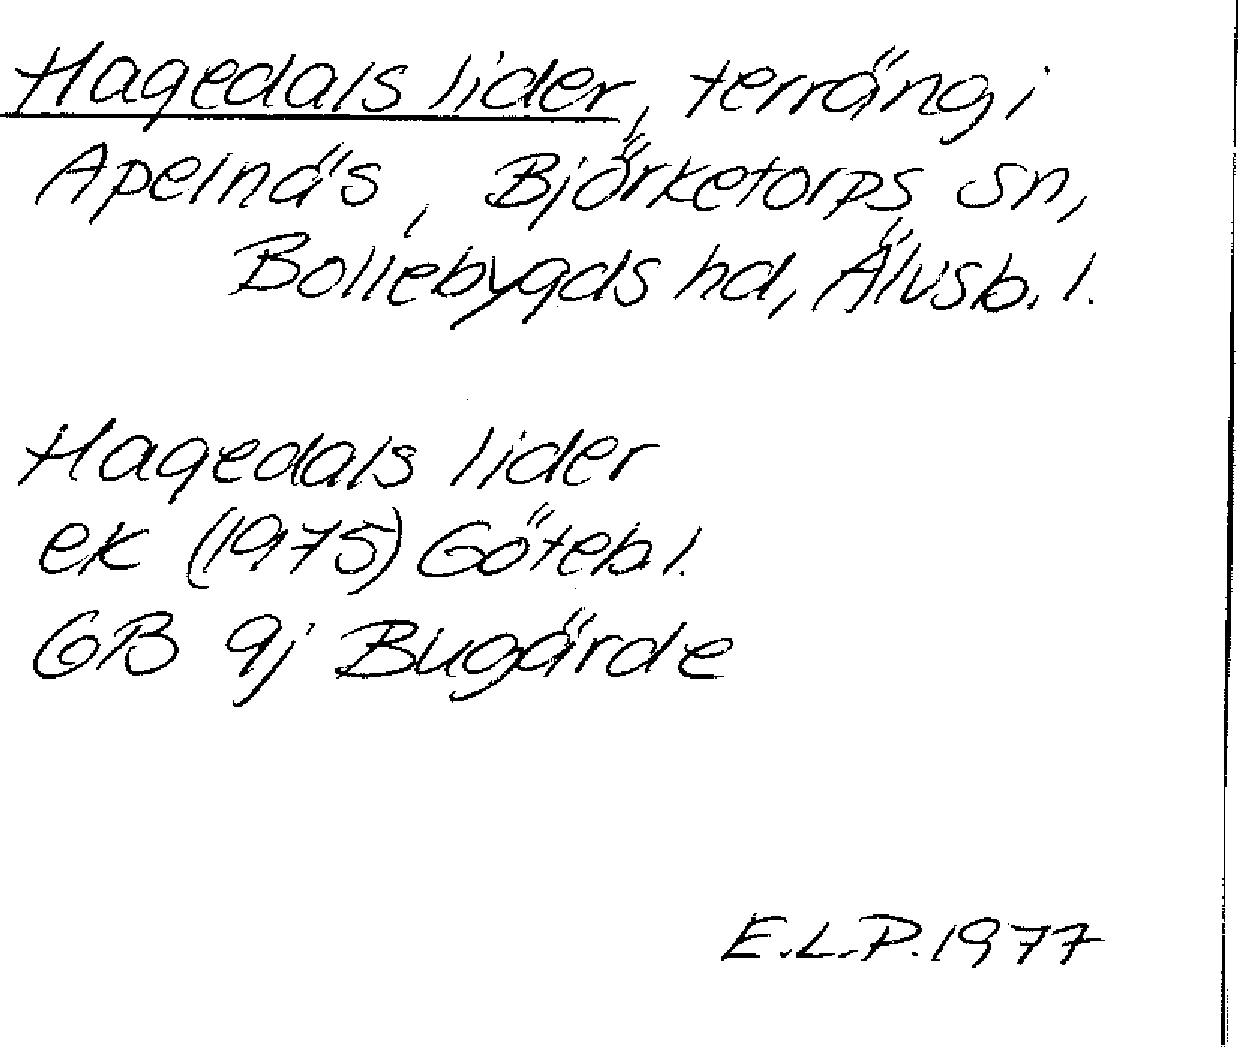 Hagedals lider, terräng i
Apelnäs, Björketorps sn,
Bollebygds hd, Älvsb. l.
Hagedals lider
ek (1975) Göteb. l.
GB 9j Bugärde
E.L.P. 1977